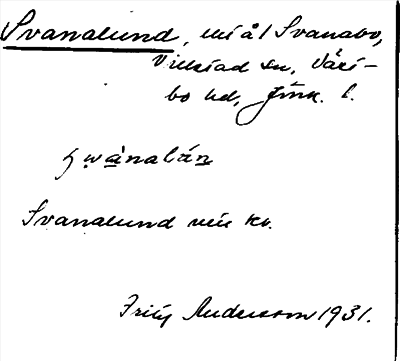 Svanalund, mi ål Svanabo,
Villstad sn, Väst-
bo hd, Jönk. l.
swànalán
Svanalund min kv.
Fritz Andersson 1931.